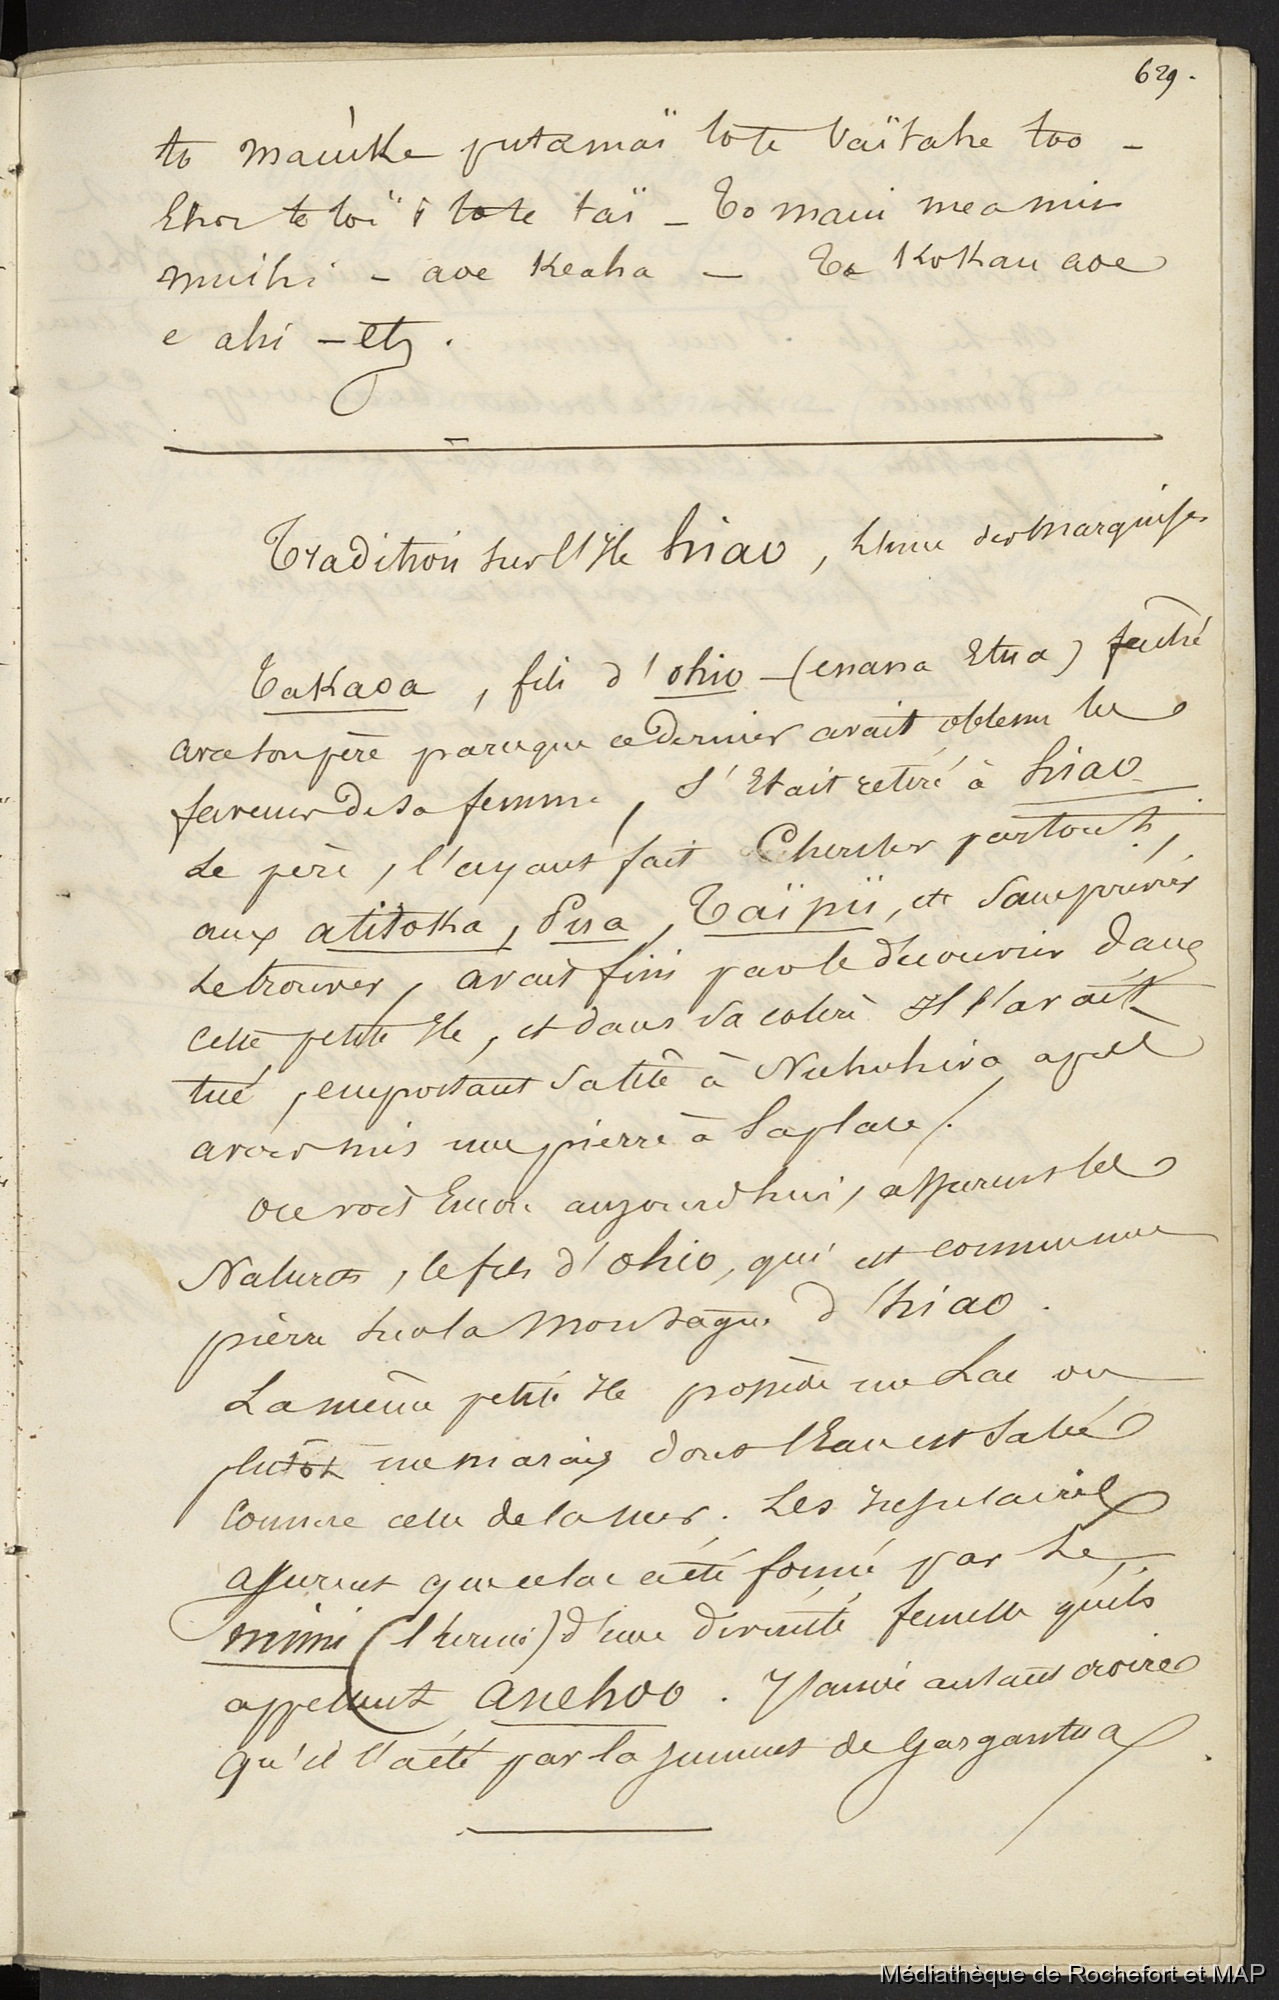 629.
to mauike putamaï tote Vaïtahe too –
Ehoe te toï i tote taï – To maui mea mii
muihi – aoe Keaha – To Kokau aoe
e ahi – etz.
Tradition sur l'Ile hiao, l'une des Marquises
Takaoa, fils d'ohio – (enana Etua) faché
avec son père parceque ce dernier avait obtenu les
faveurs de sa femme, s'était retiré à hiao
Le père, l'ayant fait Chercher partout,
aux atitoka, Pua, Taïpii, et sans pouvoir
le trouver, avait fini par le découvrir dans
cette petite Ile, et dans sa colère Il l'avait
tué, emportant sa tête à Nukuhiva après
avoir mis une pierre à Saplace.
on voit Encore aujourd'hui, assurent les
Naturels, le fils d'ohio, qui est comme une
pierre sur la Montagne d'hiao.
La même petite Ile possède un Lac ou
plutôt un marais dont l'Eau est salée
Comme celle de la mer. Les Insulaires
assurent que ce lac a été formé par le
mimi (l'urine) d'une divinité femelle qu'ils
appellent anehoo. J'aime autant croire
qu'il l'a été par la jument de Gargantua
Médiathèque de Rochefort et MAP